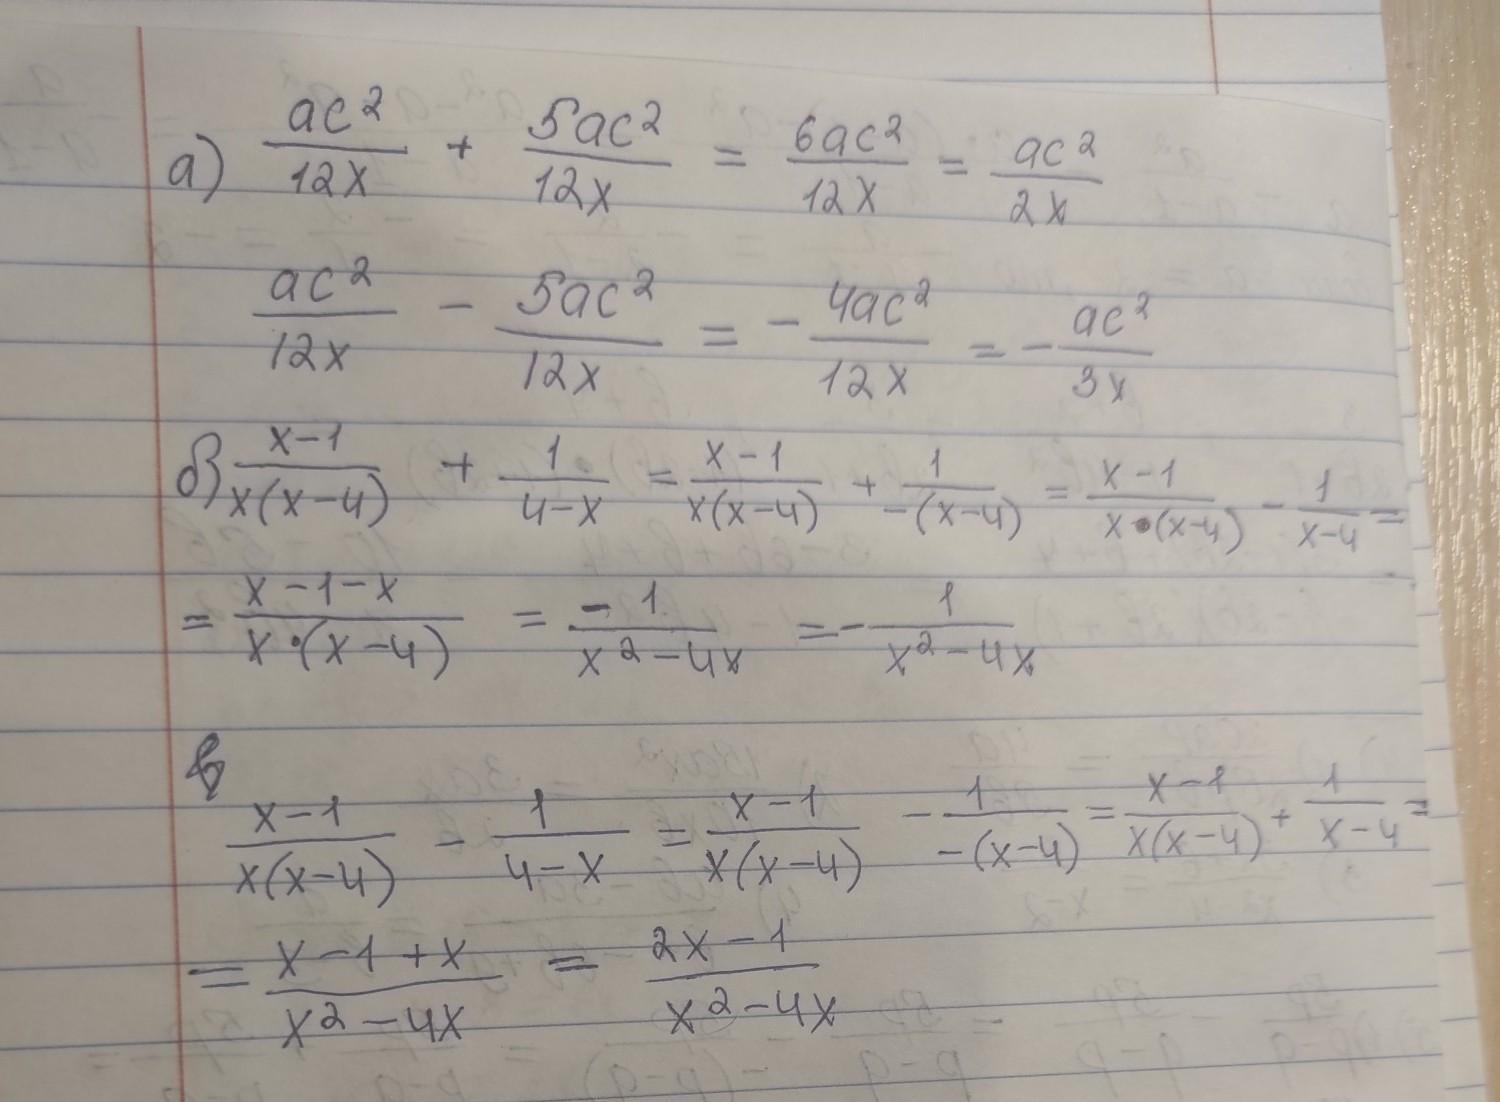 а) ac²/12x + 5ac²/12x = 6ac²/12x = ac²/2x
ac²/12x - 5ac²/12x = - 4ac²/12x = - ac²/3x
б) x-1/x(x-4) + 1/4-x = x-1/x(x-4) + 1/-(x-4) = x-1/x•(x-4) - 1/x-4 =
= x-1-x/x•(x-4) = -1/x²-4x = - 1/x²-4x
в
x-1/x(x-4) - 1/4-x = x-1/x(x-4) - 1/-(x-4) = x-1/x(x-4) + 1/x-4 =
= x-1+x/x²-4x = 2x-1/x²-4x